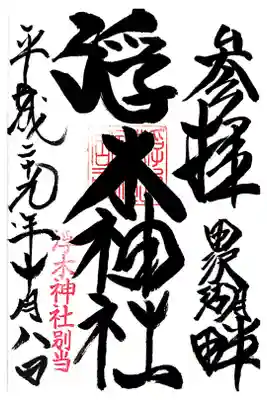 参拝
田沢湖畔
浮木神社
平成二十九年十一月八日
浮木神社別当